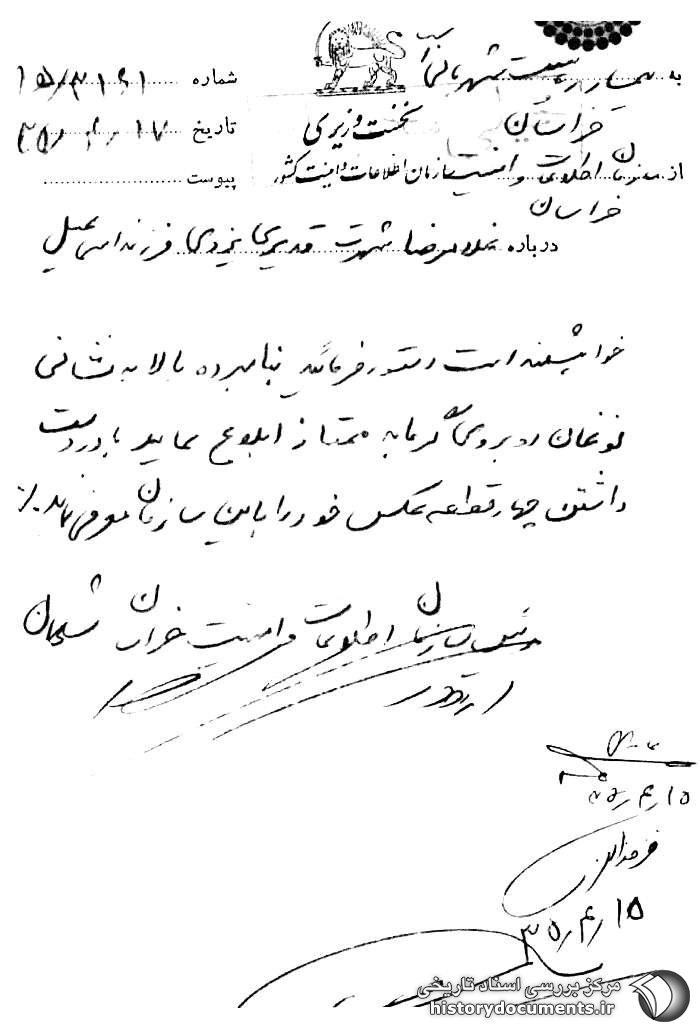 به ریاست شهربانی
خراسان
شماره
نخست وزیری
تاریخ ۳۵/۴/۱۷
از سازمان اطلاعات و امنیت
سازمان اطلاعات و امنیت کشور
پیوست
خراسان
درباره غلامرضا شهرت قدیری یزدی فرزند اسمعیل
خواهشمند است دستور فرمائید نامبرده بالا به نشانی
نوغان روبروی گرمابه ممتاز ابلاغ نماید با در دست
داشتن چهار قطعه عکس خود را باین سازمان معرفی نماید./
رئیس سازمان اطلاعات و امنیت خراسان شیخان
۳۵/۴/۱۵
۳۵/۴/۱۵
مرکز بررسی اسناد تاریخی
historydocuments.ir